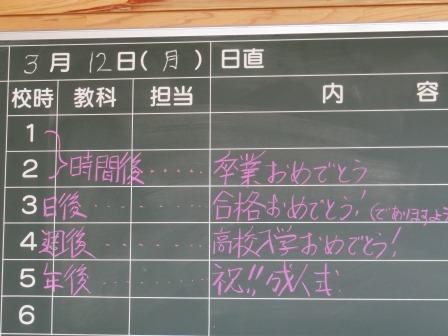 3月12日(月) 日直
校時 教科 担当 内容
1
2 時間後…… 卒業おめでとう
3日後…… 合格おめでとう!(でありますよう
4週後…… 高校入学おめでとう!
5年後…… 祝!!成人式
6